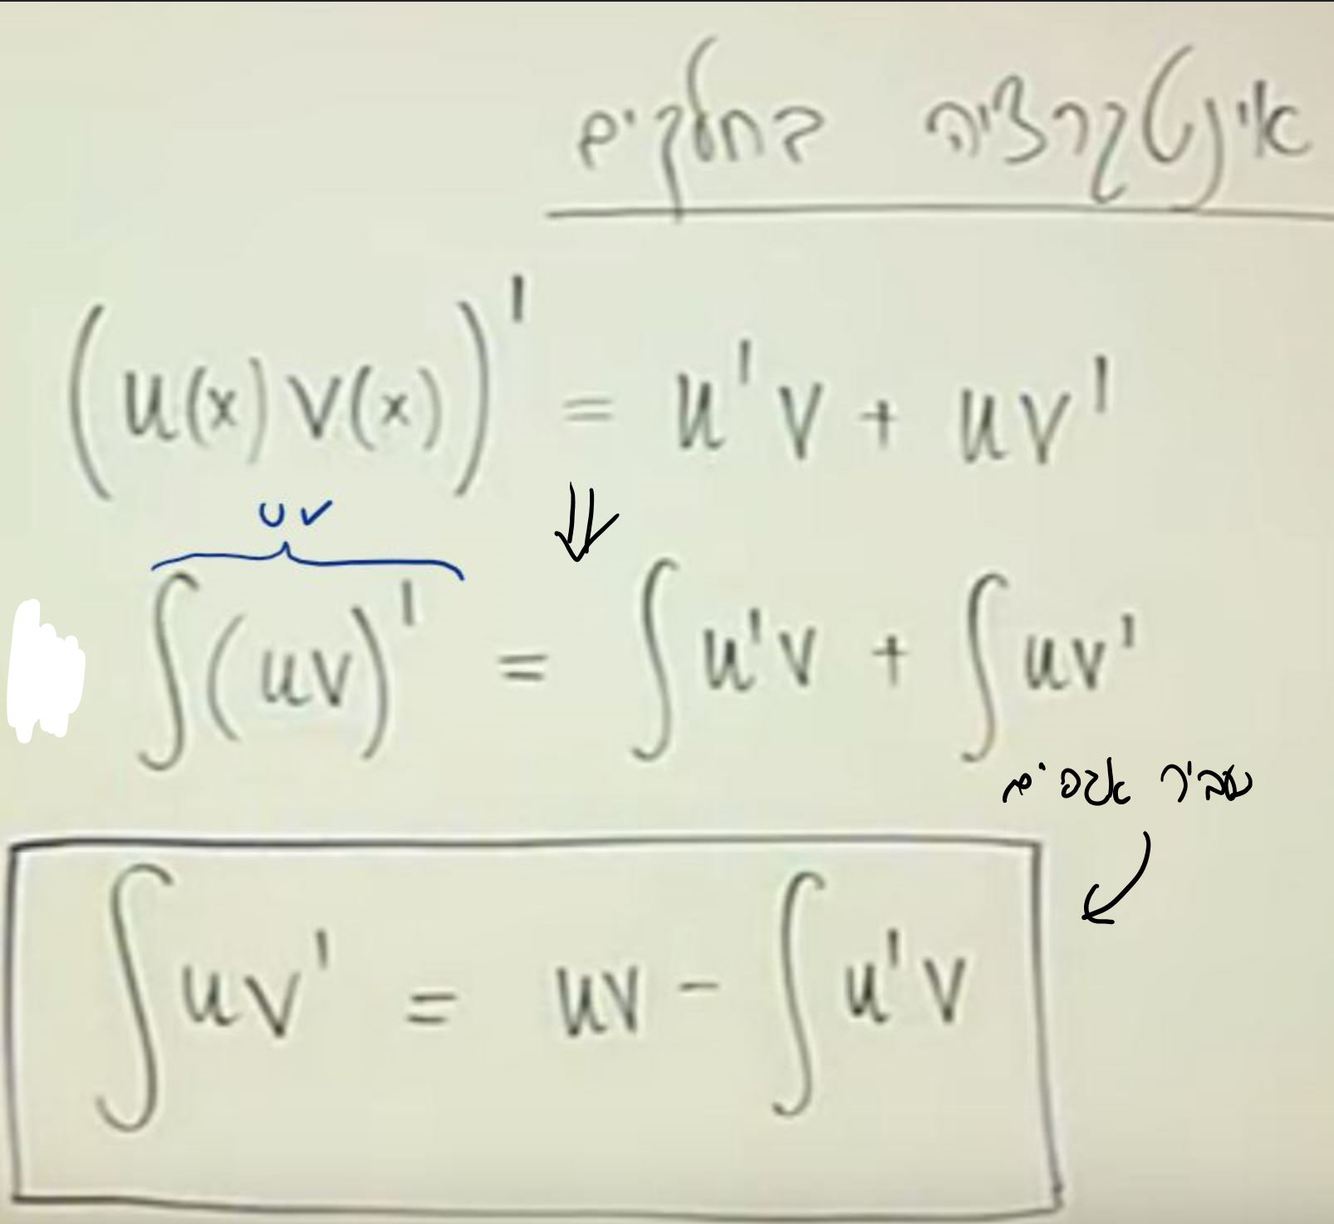 אינטגרציה בחלקים
(u(x) v(x))' = u'v + uv'
uv ⇓
∫(uv)' = ∫u'v + ∫uv'
נעביר אגפים
∫uv' = uv - ∫u'v